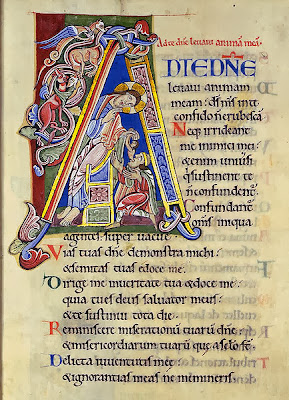 Ad te dñe levavi animā meā:
AD TE DNE
levavi animam
meam: ds̄ m̄s inte
confido n̄ erubescā
Neq; irrideant
me inimici mei:
&enim univsi
q̄ sustinent te
n̄ confundent̄
Confundant̄
om̄s iniqua
agentes: super vacue
Vias tuas dn̄e demonstra michi:
& semitas tuas edoce me.
Dirige me in veritate tua & doce me:
quia tu es deus salvator meus:
& te sustinui tota die.
Reminiscere miserationū tuarū dn̄e:
& misericordiarum tuarū que a sclo st̄.
Delicta iuventutis mee:
& ignorantias meas ne memineris